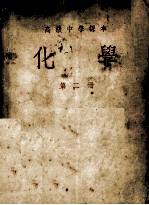 高級中學課本
化學
第二冊